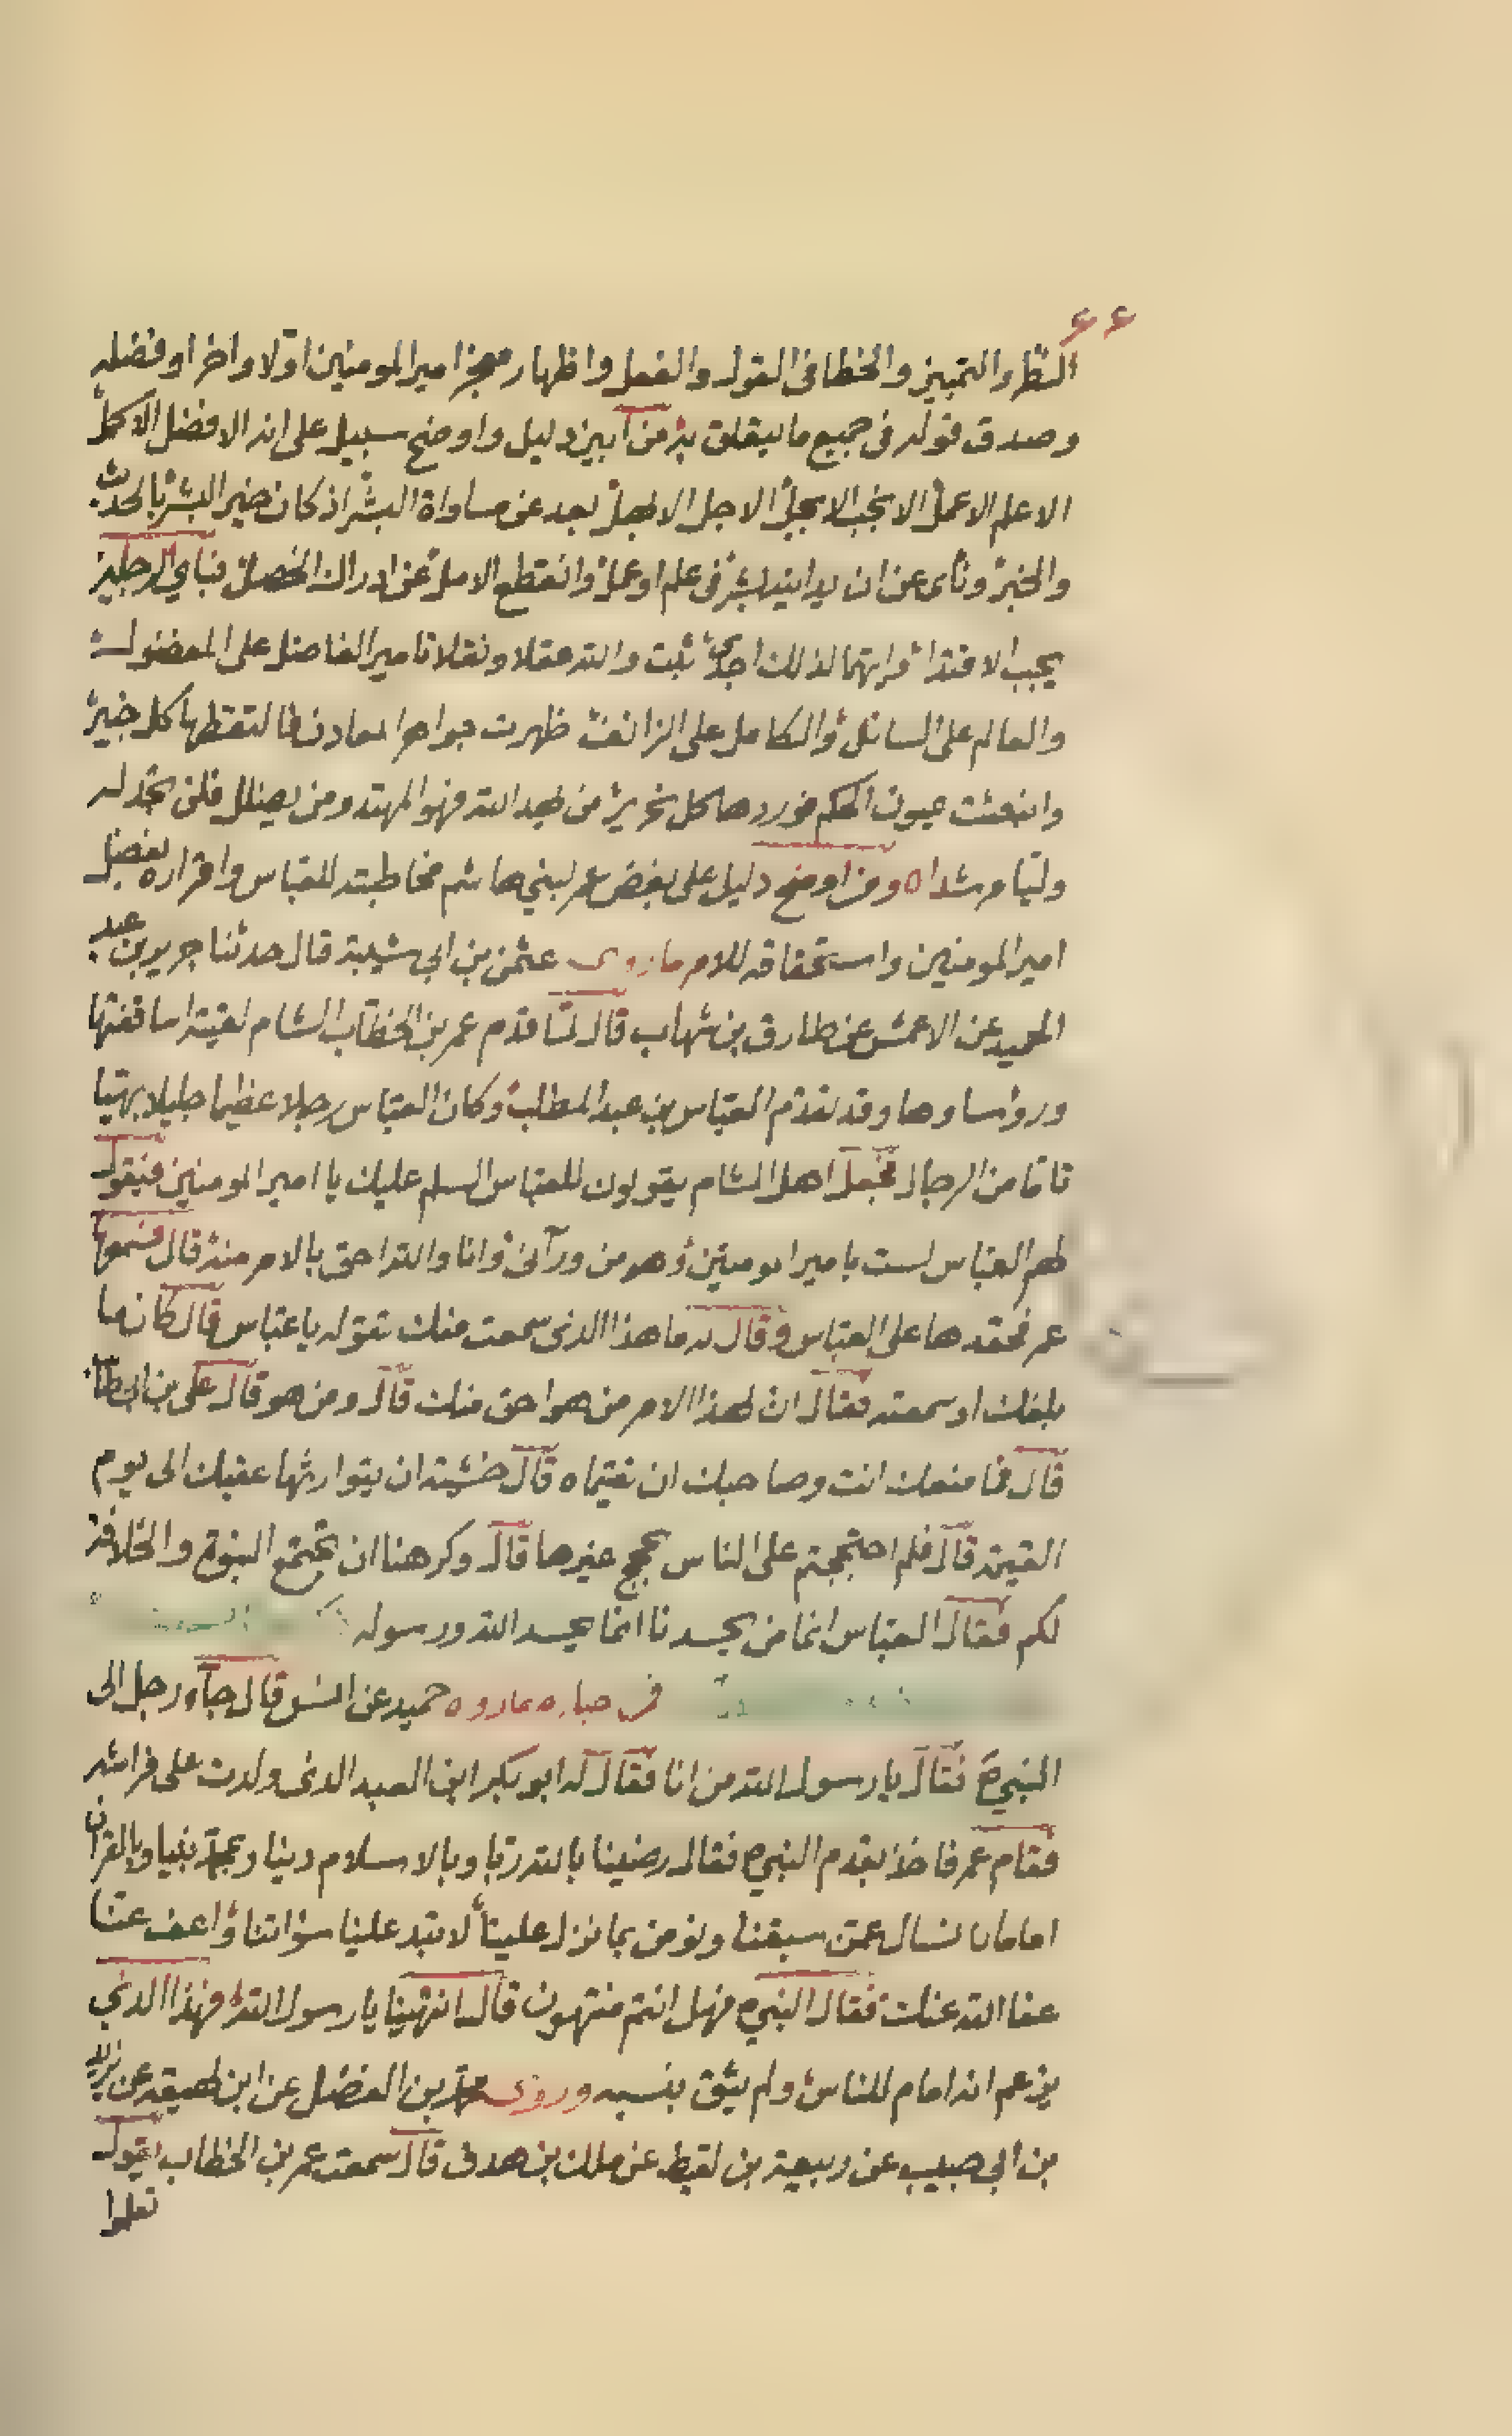 ٤٤
النظر والتمييز والخطا فى القول والفعل واظهار معجز امير المومنين اولا واخرا وفضله
وصدق قوله فى جميع ما يتعلق به من ابين دليل واوضح سبيل على انه الافضل الاكمل
الاعلم الاعمل الانجب الابجل الاجل الابهل بعد عن مساواة البشر اذ كان خير البشر بالحديث
والخبر ونأى عن ان يدانيه بشر فى علم او عمل وانقطع الامل عن ادراك الخصل فباى الرجلين
يجب الاقتدا وايهما لذلك اجدى ثبت والله عقلا ونقلا تامير الفاضل على المفضول
والعالم على السائل والكامل على الزائف ظهرت جواهر المعادن فالتقطها كل خبير
وانبعثت عيون الحكم فوردها كل نحرير من يهد الله فهو المهتد ومن يضلل فلن تجد له
وليا مرشدا ٥ ومن اوضح دليل على بغض عمر لبني هاشم مخاطبته للعباس واقراره بفضل
امير المومنين واستحقاقه للامر ما روى عثمن بن ابي شيبة قال حدثنا جرير بن عبد
الحميد عن الاعمش عن طارق بن شهاب قال لما قدم عمر بن الخطاب الشام لقيته اساقفتها
ورؤساوها وقد تقدم العباس بن عبد المطلب وكان العباس رجلا عظيما جليلا بهيا
تاما من الرجال فجعل اهل الشام يقولون للعباس السلم عليك يا امير المومنين فيقول
لهم العباس لست بامير المومنين وهو من ورآئى وانا والله احق بالامر منه قال فسمعها
عمر فحقدها على العباس وقال له ما هذا الذى سمعت منك تقوله يا عباس قال كان ما
بلغك او سمعته فقال ان لهذا الامر من هو احق منك قال ومن هو قال على بن ابيطالب
قال فما منعك انت وصاحبك ان تقيماه قال خشيته ان يتوارثها عقبك الى يوم
القيمة قال فلم احتججتم على الناس بحجج غيرها قال وكرهنا ان تجتمع النبوة والخلافة
لكم فقال العباس انما من يحسدنا انما يحسد الله ورسوله
حميد عن انس قال جآء رجل الى
النبي ص فقال يا رسول الله من انا فقال له ابو بكر ابن العبد الذى ولدت على فراشه
فقام عمر فاخذ بقدم النبي ص فقال رضينا بالله ربا وبالاسلام دينا وبمحمد نبيا وبالقران
اماما لا نسال عمن سبقنا ونومن بما نزل علينا لا تبد علينا سؤاتنا واعف عنا
عفا الله عنك فقال النبي ص فهل انتم منتهون قال انتهينا يا رسول الله فهذا الذي
يزعم انه امام للناس ولم يثق بنسبه وروى محمد بن الفضل عن ابن لهيعة عن يزيد
بن ابي حبيب عن ربيعة بن لقيط عن ملك بن هدى قال سمعت عمر بن الخطاب يقول
تعلموا